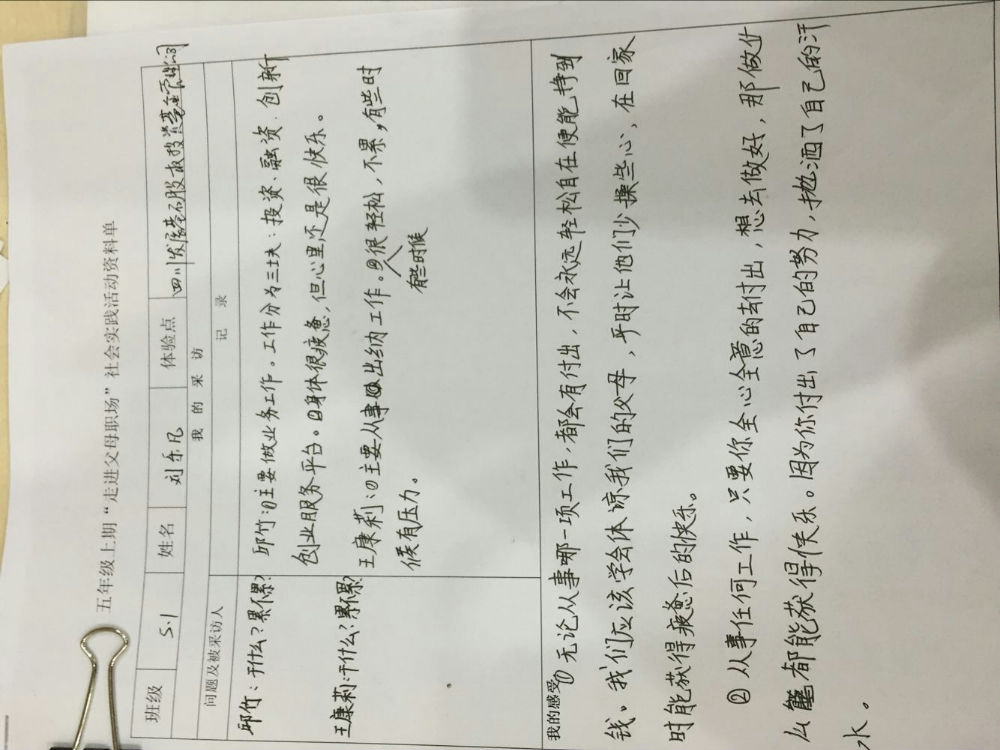 五年级上期“走进父母职场”社会实践活动资料单
班级 5.1 姓名 刘乐凡 体验点 四川发展产研股权投资基金管理公司
我的采访
问题及被采访人 记录
邱竹:干什么?累不累?
邱竹:①主要做业务工作。工作分为三块:投资、融资、创新
创业服务平台。②身体很疲惫,但心里还是很快乐。
王康莉:干什么?累不累?
王康莉:①主要从事出纳工作。②有些时候很轻松,不累,有些时
候有压力。
我的感受
①无论从事哪一项工作,都会有付出,不会永远轻松自在便能挣到
钱。我们应该学会体谅我们的父母,平时让他们少操些心,在回家
时能获得疲惫后的快乐。
②从事任何工作,只要你全心全意的去付出,想去做好,那做什
么都能获得快乐。因为你付出了自己的努力,抛洒了自己的汗
水。